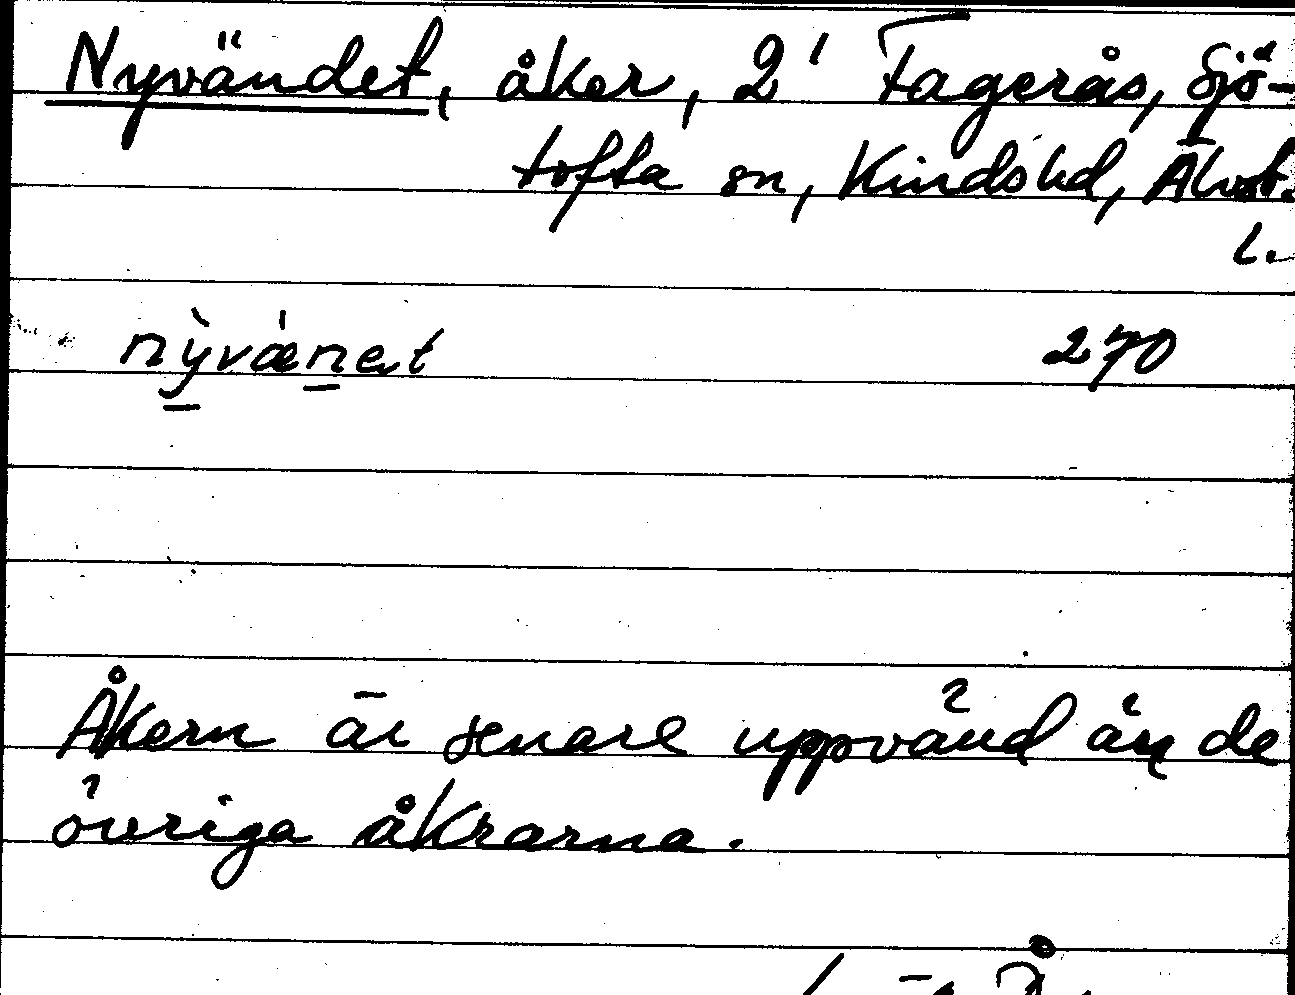 Nyvändet, åker, 2' Fagerås, Sjö-
tofta sn, Kinds hd, Älvsb.
l.
nỳvǽnet 270
Åkern är senare uppvänd än de
övriga åkrarna.